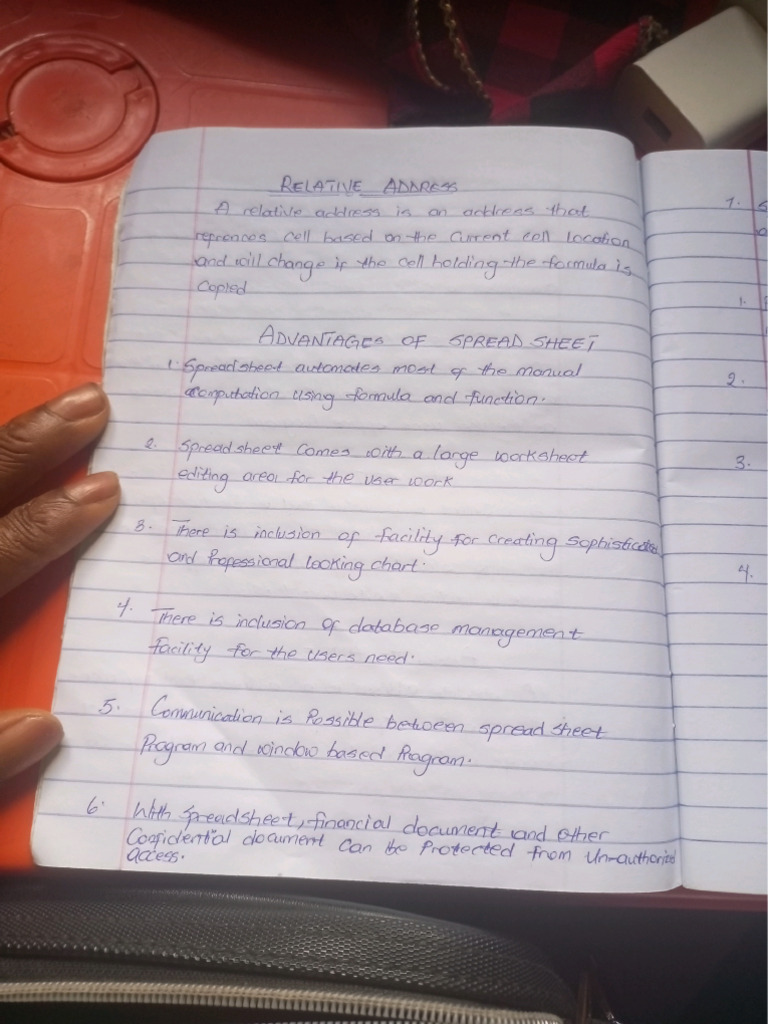 RELATIVE ADDRESS
A relative address is an address that
reprences cell based on the current cell location
and will change if the cell holding the formula is
Copied
ADVANTAGES OF SPREAD SHEET
1. Spreadsheet automates most of the manual
computation using formula and function.
2. Spreadsheet comes with a large worksheet
editing area for the user work
3. There is inclusion of facility for creating Sophisticated
and Professional looking chart.
4. There is inclusion of database management
facility for the users need.
5. Communication is Possible between spread sheet
Program and window based Program.
6. With Spreadsheet, financial document and other
Confidential document can be Protected from Un-authorized
access.
1.
1.
2.
3.
4.